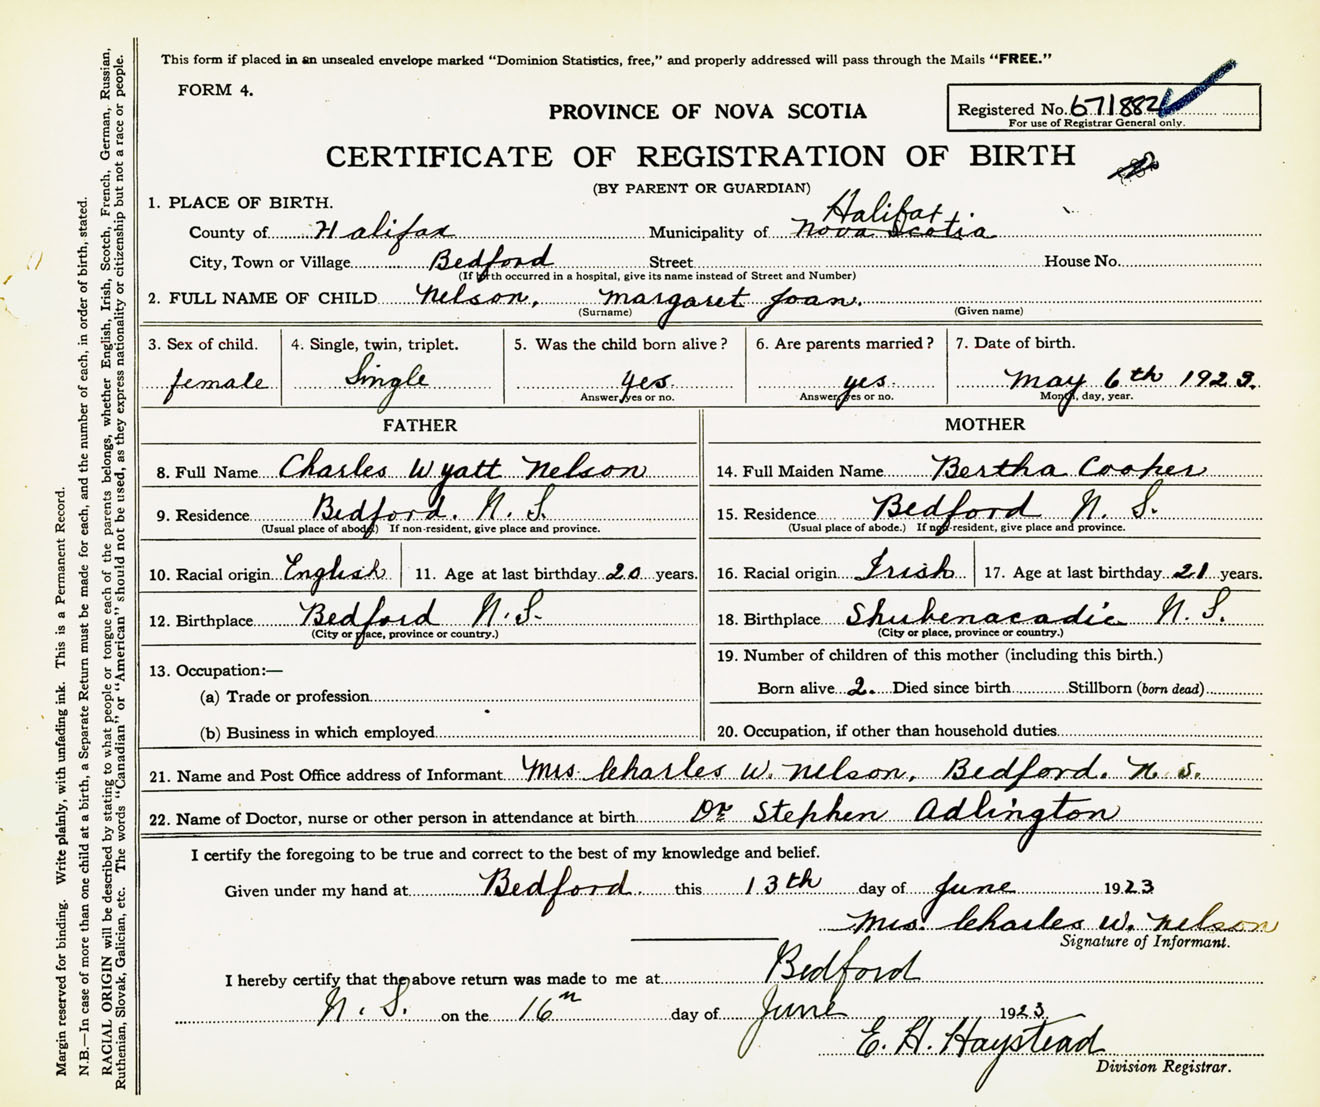 This form if placed in an unsealed envelope marked "Dominion Statistics, free," and properly addressed will pass through the Mails "FREE."
FORM 4.
PROVINCE OF NOVA SCOTIA
Registered No. 671882
For use of Registrar General only.
CERTIFICATE OF REGISTRATION OF BIRTH
(BY PARENT OR GUARDIAN)
1. PLACE OF BIRTH.
Halifax
County of Halifax Municipality of Nova Scotia
City, Town or Village Bedford Street House No.
(If birth occurred in a hospital, give its name instead of Street and Number)
2. FULL NAME OF CHILD Nelson, Margaret Joan.
(Surname) (Given name)
3. Sex of child. 4. Single, twin, triplet. 5. Was the child born alive? 6. Are parents married? 7. Date of birth.
female Single yes. yes. May 6th 1923.
Answer, yes or no. Answer, yes or no. Month, day, year.
FATHER MOTHER
8. Full Name Charles Wyatt Nelson 14. Full Maiden Name Bertha Cooper
9. Residence Bedford. N. S. 15. Residence Bedford N. S.
(Usual place of abode.) If non-resident, give place and province. (Usual place of abode.) If non-resident, give place and province.
10. Racial origin English 11. Age at last birthday 20 years. 16. Racial origin Irish 17. Age at last birthday 21 years.
12. Birthplace Bedford N.S. 18. Birthplace Shubenacadie N. S.
(City or place, province or country.) (City or place, province or country.)
13. Occupation:— 19. Number of children of this mother (including this birth.)
(a) Trade or profession Born alive 2. Died since birth Stillborn (born dead)
(b) Business in which employed 20. Occupation, if other than household duties
21. Name and Post Office address of Informant Mrs Charles W. Nelson, Bedford. N. S.
22. Name of Doctor, nurse or other person in attendance at birth Dr Stephen Adlington
I certify the foregoing to be true and correct to the best of my knowledge and belief.
Given under my hand at Bedford. this 13th day of June 1923
Mrs. Charles W. Nelson
Signature of Informant.
I hereby certify that the above return was made to me at Bedford
N. S. on the 16th day of June 1923
E. H. Haystead
Division Registrar.
Margin reserved for binding. Write plainly, with unfading ink. This is a Permanent Record.
N.B.—In case of more than one child at a birth, a Separate Return must be made for each, and the number of each, in order of birth, stated.
RACIAL ORIGIN will be described by stating to what people or tongue each of the parents belongs, whether English, Irish, Scotch, French, German, Russian,
Ruthenian, Slovak, Galician, etc. The words "Canadian" or "American" should not be used, as they express nationality or citizenship but not a race or people.